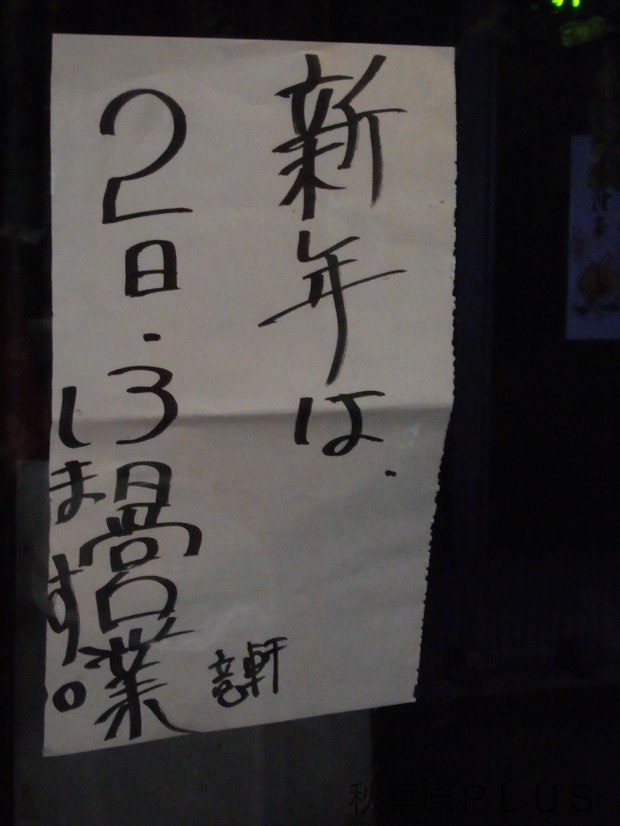 新年は、
2日・3日営業
します。
竜軒
秋葉原ＰＬＵＳ